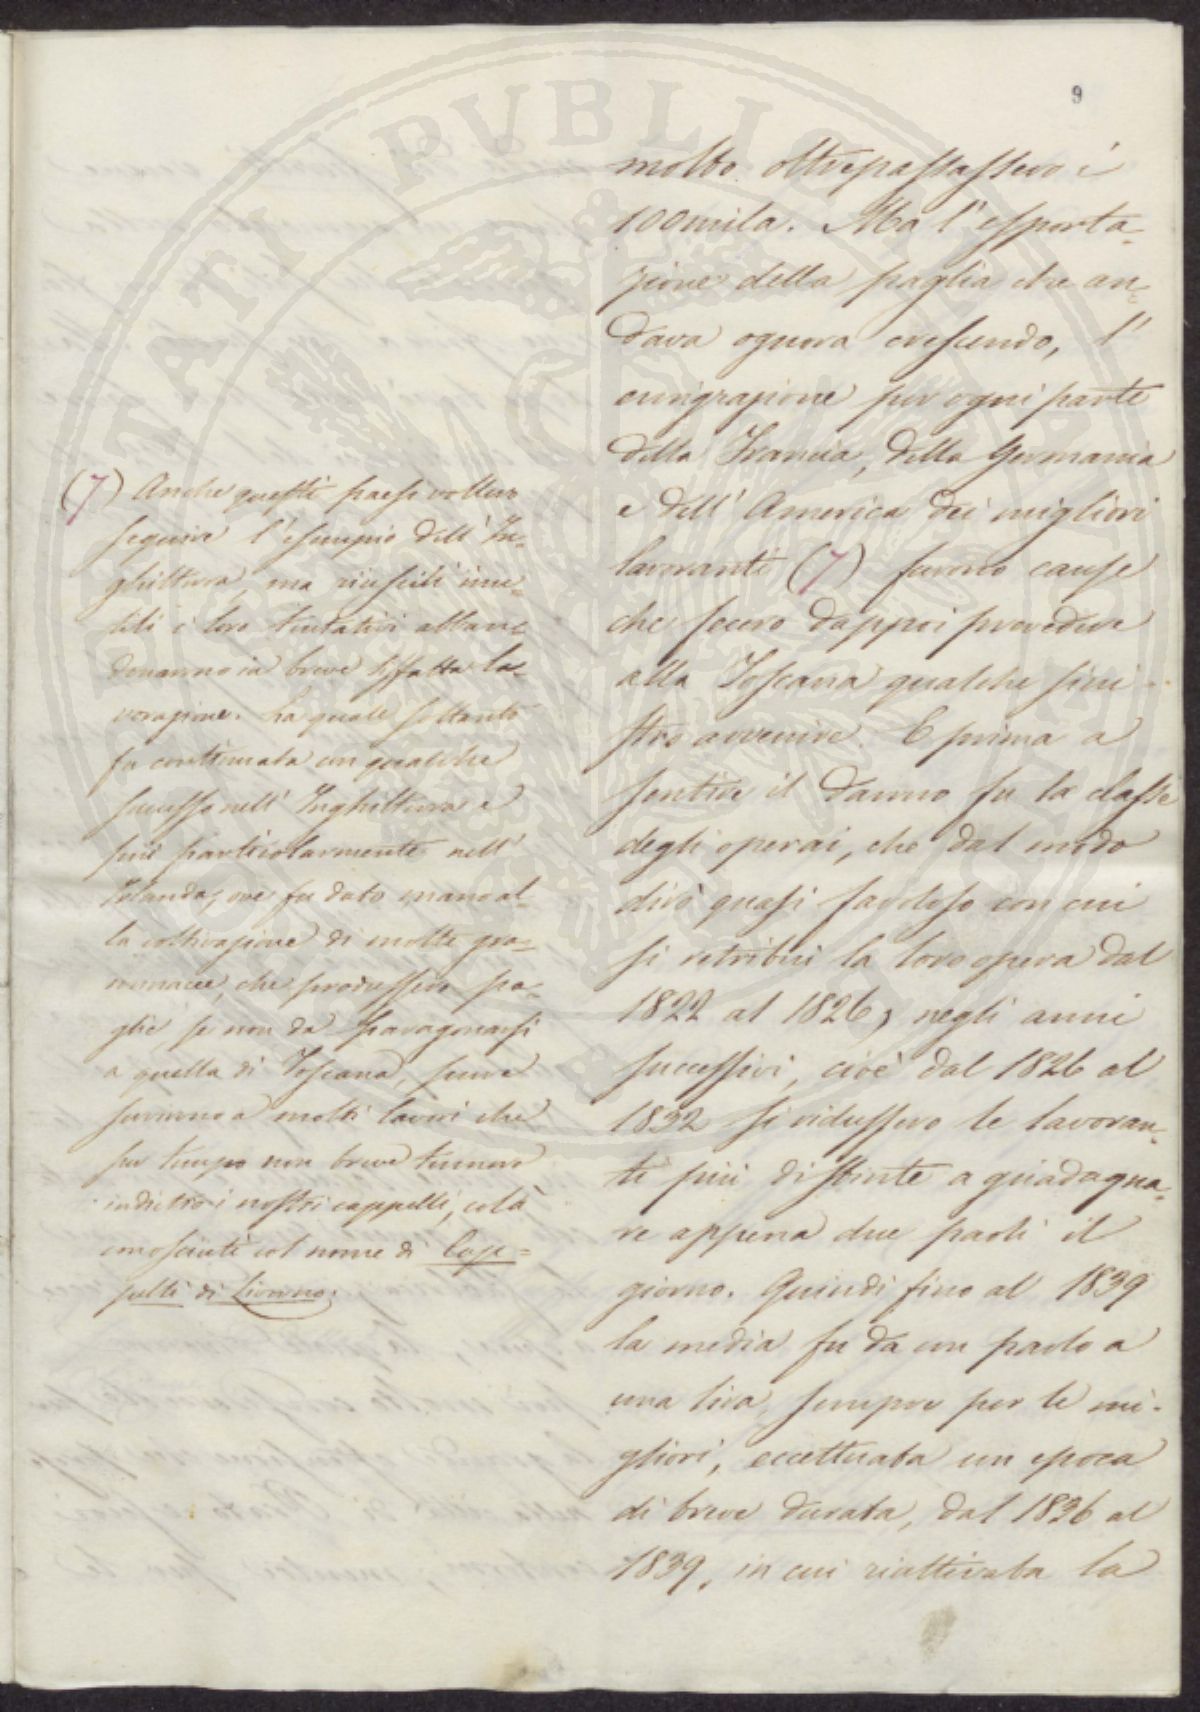 9
molto oltrepassassero i
100mila. Ma l'esporta-
zione della paglia che an-
dava ognora crescendo, l'
emigrazione per ogni parte
della Francia, della Germania
e dell'America dei migliori
lavoranti (7) furono cause
che fecero dappoi prevedere
alla Toscana qualche sini-
stro avvenire. E prima a
sentire il danno fu la classe
degli operai, che dal modo
dirò quasi favoloso con cui
si retribuì la loro opera dal
1822 al 1826, negli anni
successivi, cioè dal 1826 al
1832 si ridussero le lavoran-
ti più distinte a guadagna-
re appena due paoli il
giorno. Quindi fino al 1839
la media fu da un paolo a
una lira, sempre per le mi-
gliori, eccettuata un epoca
di breve durata, dal 1836 al
1839, in cui riattivata la
(7) Anche questi paesi vollero
seguire l'esempio dell'In-
ghilterra, ma riusciti inu-
tili i loro tentativi abban-
donarono in breve siffatta la-
vorazione. La quale soltanto
fu continuata con qualche
successo nell'Inghilterra e
più particolarmente nell'
Irlanda, ove fu dato mano al-
la coltivazione di molte gra-
minacee, che produssero pa-
glie, se non da paragonarsi
a quella di Toscana, pure
servirono a molti lavori che
per tempo non breve tennero
indietro i nostri cappelli, colà
conosciuti col nome di Cap-
pelli di Livorno.
PUBLIC